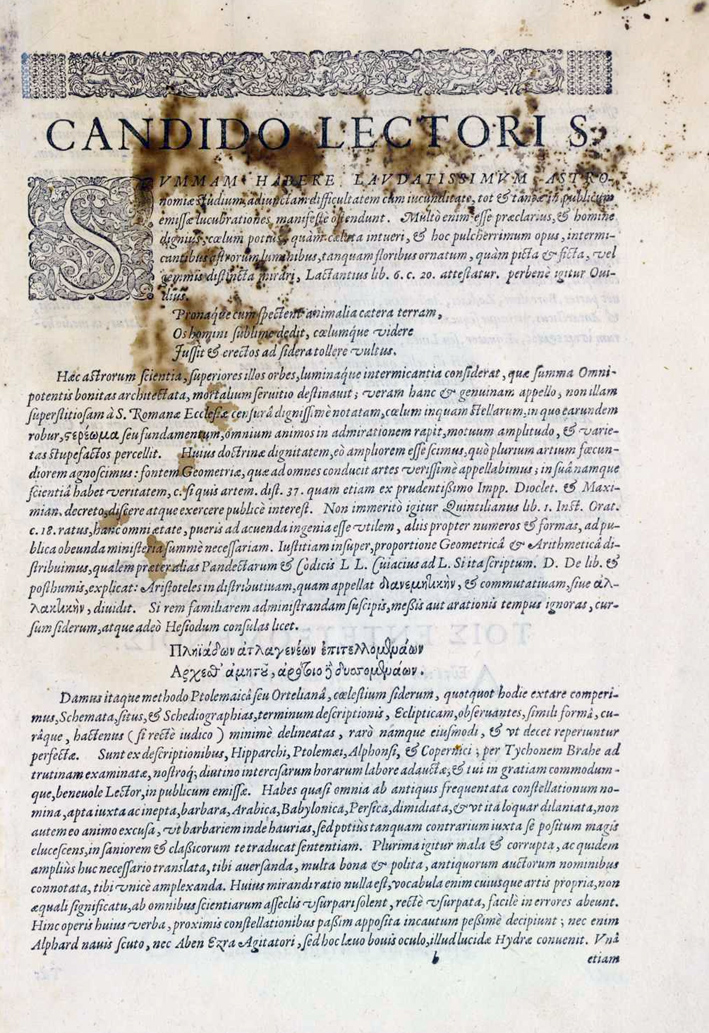 CANDIDO LECTORI S.
SVMMAM HABERE LAVDATISSIMVM ASTRO-
nomiæ studium, adiunctam difficultatem cum iucunditate, tot & tantæ in publicum
emissæ lucubrationes, manifeste ostendunt. Multò enim esse præclarius, & homine
dignius, cœlum potius, quàm cælata intueri, & hoc pulcherrimum opus, intermi-
cantibus astrorum luminibus, tanquam floribus ornatum, quàm picta & ficta, vel
gemmis distincta mirari, Lactantius lib. 6. c. 20. attestatur. perbenè igitur Oui-
dius.
Pronaque cum spectent animalia cætera terram,
Os homini sublime dedit, cœlumque videre
Jussit & erectos ad sidera tollere vultus.
Hæc astrorum scientia, superiores illos orbes, luminaque intermicantia considerat, quæ summa Omni-
potentis bonitas architectata, mortalium seruitio destinauit; veram hanc & genuinam appello, non illam
superstitiosam à S. Romanæ Ecclesiæ censurâ dignissimè notatam, cœlum inquam stellarum, in quo earundem
robur, ςερέωμα seu fundamentum, omnium animos in admirationem rapit, motuum amplitudo, & varie-
tas stupefactos percellit. Huius doctrinæ dignitatem, eò ampliorem esse scimus, quò plurium artium fœcun-
diorem agnoscimus: fontem Geometriæ, quæ ad omnes conducit artes verissimè appellabimus; in suâ namque
scientiâ habet veritatem, c. si quis artem. dist. 37. quam etiam ex prudentissimo Impp. Dioclet. & Maxi-
mian. decreto, discere atque exercere publicè interest. Non immeritò igitur Quintilianus lib. 1. Inst. Orat.
c. 18. ratus, hanc omni etate, pueris ad acuenda ingenia esse vtilem, aliis propter numeros & formas, ad pu-
blica obeunda ministeria summè necessariam. Iustitiam insuper, proportione Geometricâ & Arithmeticâ di-
stribuimus, qualem præter alias Pandectarum & Codicis L L. Cuiacius ad L. Si ita scriptum. D. De lib. &
posthumis, explicat: Aristoteles in distributiuam, quam appellat διανεμητικὴν, & commutatiuam, siue ἀλ-
λακτικὴν, diuidit. Si rem familiarem administrandam suscipis, messis aut arationis tempus ignoras, cur-
sum siderum, atque adeò Hesiodum consulas licet.
Πληϊάδων ἀτλαγενέων ἐπιτελλομενάων
Αρχεθ' ἀμητοῦ, ἀρότοιο ἢ δυσομενάων.
Damus itaque methodo Ptolemaicâ seu Ortelianâ, cœlestium siderum, quotquot hodie extare comperi-
mus, Schemata, situs, & Schediographias, terminum descriptionis, Eclipticam, obseruantes, simili formâ, cu-
râque, hactenus (si rectè iudico) minimè delineatas, rarò námque eiusmodi, & vt decet reperiuntur
perfectæ. Sunt ex descriptionibus, Hipparchi, Ptolemæi, Alphonsi, & Copernici; per Tychonem Brahe ad
trutinam examinatæ, nostroq; diutino intercisarum horarum labore adauctæ, & tui in gratiam commodum-
que, beneuole Lector, in publicum emissæ. Habes quasi omnia ab antiquis frequentata constellationum no-
mina, apta iuxta ac inepta, barbara, Arabica, Babylonica, Persica, dimidiata, & vt ita loquar dilaniata, non
autem eo animo excusa, vt barbariem inde haurias, sed potiùs tanquam contrarium iuxta se positum magis
elucescens, in saniorem & classicorum te traducat sententiam. Plurima igitur mala & corrupta, ac quidem
ampliùs huc necessario translata, tibi auersanda, multa bona & polita, antiquorum auctorum nominibus
connotata, tibi vnicè amplexanda. Huius mirandi ratio nulla est, vocabula enim cuiusque artis propria, non
æquali significatu, ab omnibus scientiarum asseclis vsurpari solent, rectè vsurpata, facilè in errores abeunt.
Hinc operis huius verba, proximis constellationibus passim apposita incautum pessimè decipiunt; nec enim
Alphard nauis scuto, nec Aben Ezra Agitatori, sed hoc læuo bouis oculo, illud lucidæ Hydræ conuenit. Vnâ
b etiam